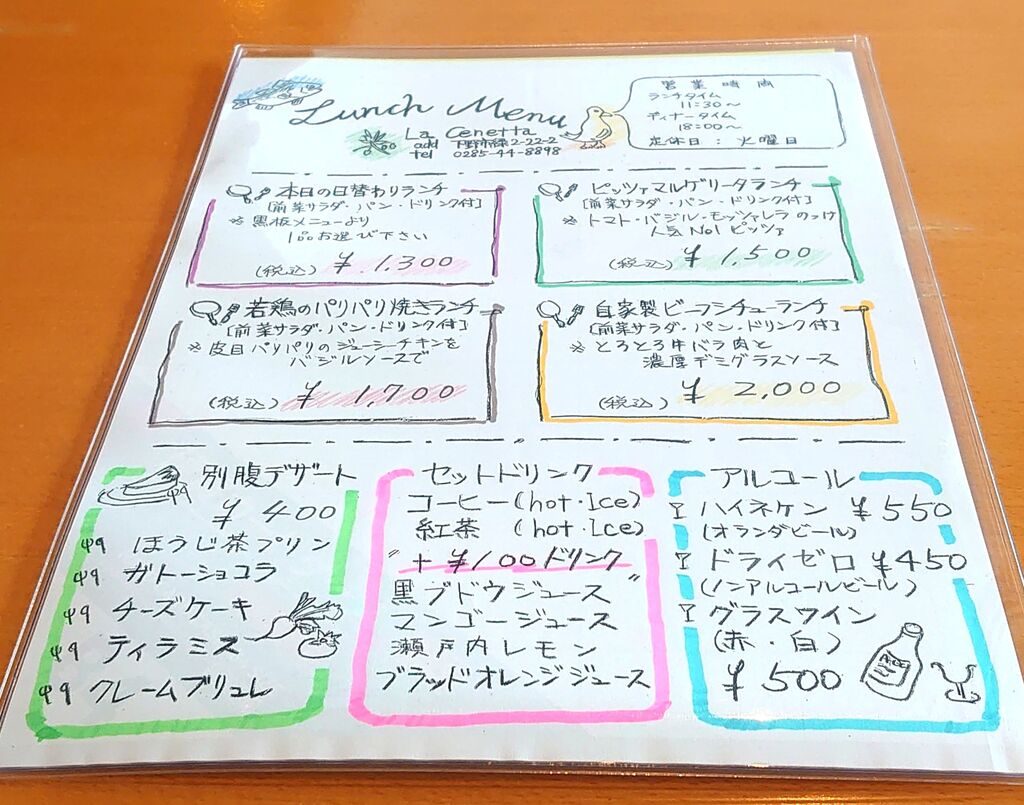 Lunch Menu
La Cenetta
add 下野市緑2-22-2
tel 0285-44-8898
営業時間
ランチタイム
11:30〜
ディナータイム
18:00〜
定休日：火曜日
本日の日替わりランチ
[前菜サラダ・パン・ドリンク付]
※黒板メニューより
1品お選び下さい
(税込) ¥1,300
ピッツァマルゲリータランチ
[前菜サラダ・パン・ドリンク付]
※トマト・バジル・モッツァレラのっけ
人気No1ピッツァ
(税込) ¥1,500
若鶏のパリパリ焼きランチ
[前菜サラダ・パン・ドリンク付]
※皮目パリパリのジューシーチキンを
バジルソースで
(税込) ¥1,700
自家製ビーフシチューランチ
[前菜サラダ・パン・ドリンク付]
※とろとろ牛バラ肉と
濃厚デミグラスソース
(税込) ¥2,000
別腹デザート
¥400
ほうじ茶プリン
ガトーショコラ
チーズケーキ
ティラミス
クレームブリュレ
セットドリンク
コーヒー(hot・Ice)
紅茶 (hot・Ice)
"+¥100ドリンク"
黒ブドウジュース
マンゴージュース
瀬戸内レモン
ブラッドオレンジジュース
アルコール
ハイネケン ¥550
(オランダビール)
ドライゼロ ¥450
(ノンアルコールビール)
グラスワイン
(赤・白)
¥500